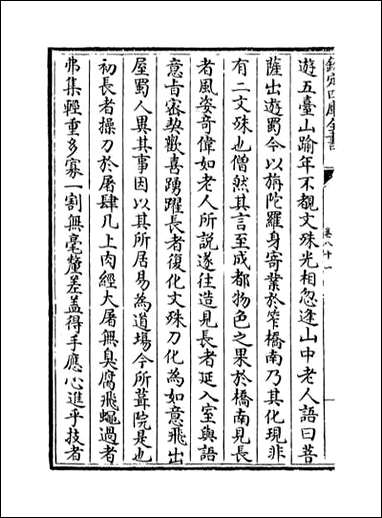 欽定四庫全書
卷八十一
遊五臺山踰年不覩文殊光相忽逢山中老人語曰菩
薩出遊蜀今以旃陀羅身寄業於笮橋南乃其化現非
有二文殊也僧然其言至成都物色之果於橋南見長
者風姿奇偉如老人所說遂往造見長者延入室與語
意㫖審契歡喜踴躍長者復化文殊刀化為如意飛出
屋蜀人異其事因以其所居易為道場今所葺院是也
初長者操刀於屠肆几上肉經大屠無臭腐飛蠅過者
弗集輕重多寡一割無毫釐差盖得手應心進乎技者